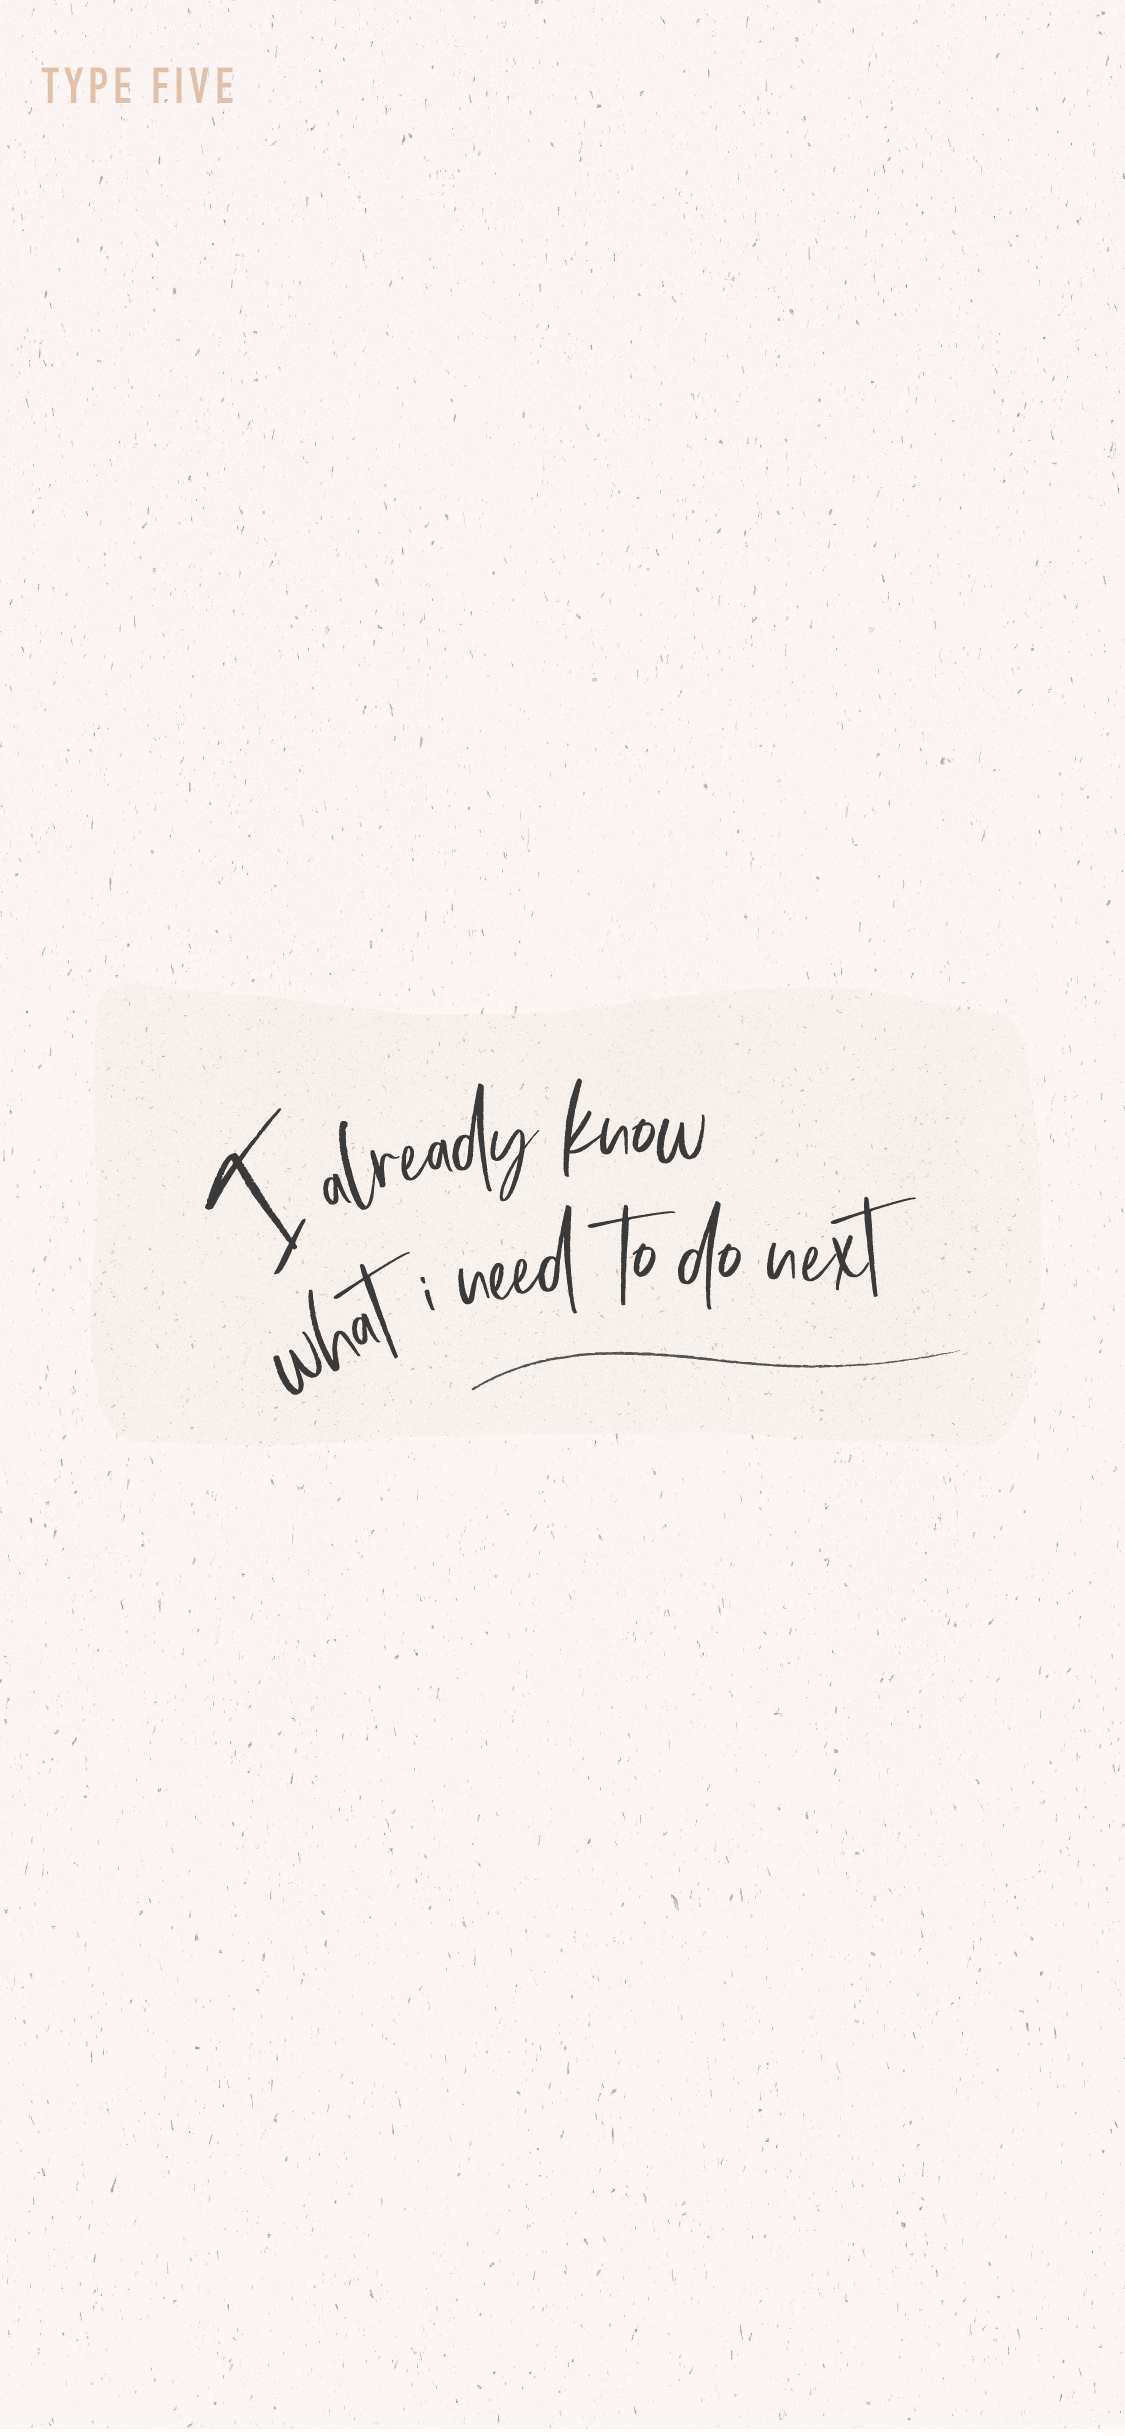 TYPE FIVE
I already know
what i need to do next